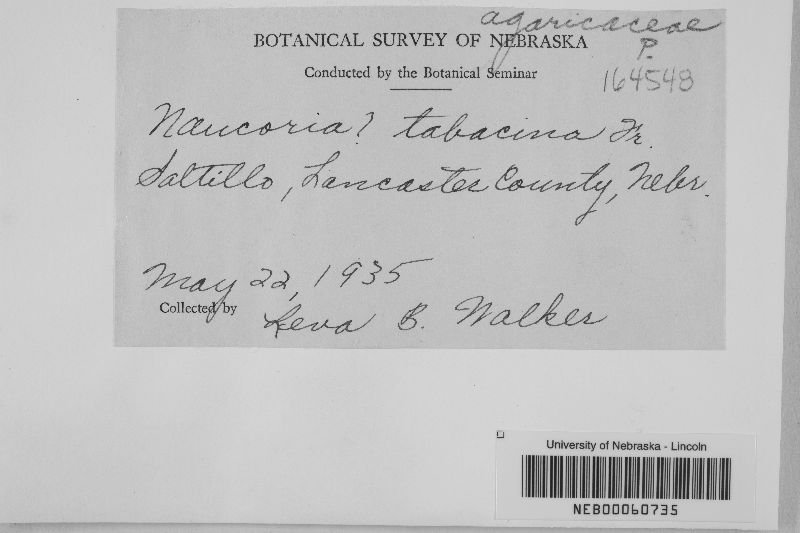 agaricaceae
BOTANICAL SURVEY OF NEBRASKA
P.
Conducted by the Botanical Seminar
164548
Naucoria? tabacina Fr.
Saltillo, Lancaster County, Nebr.
May 22, 1935
Collected by Leva B. Walker
University of Nebraska - Lincoln
NEB00060735